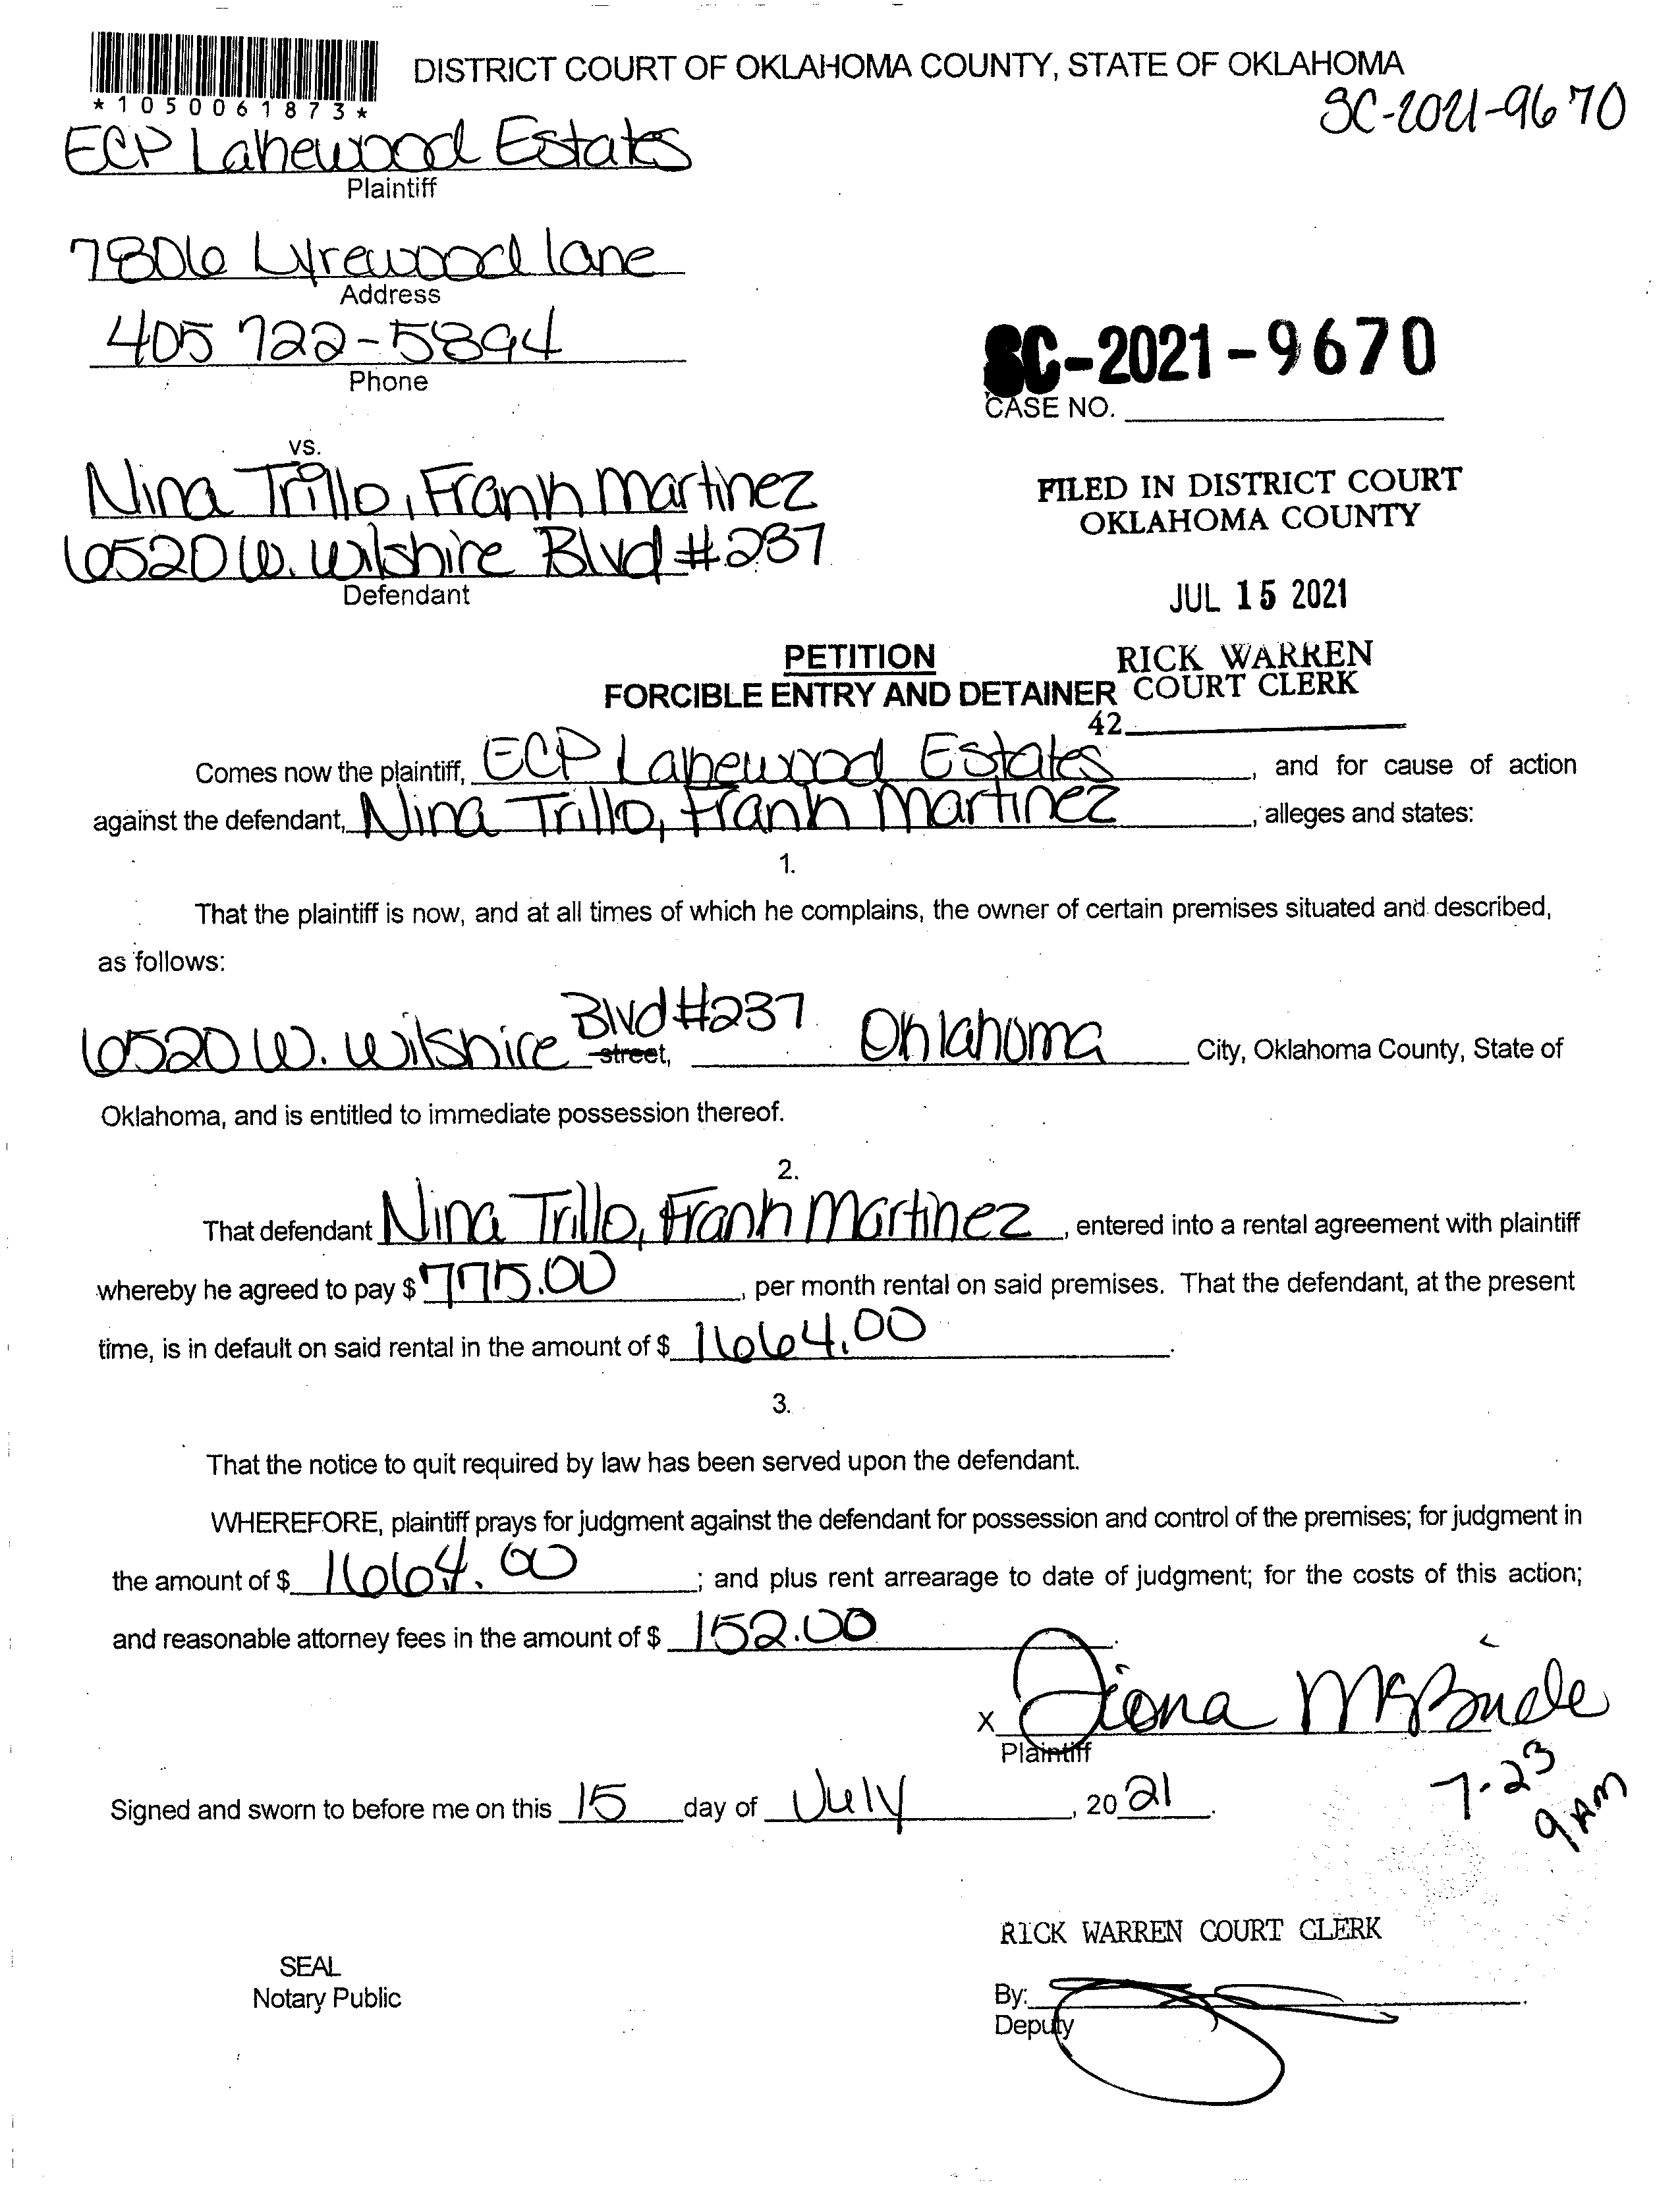 DISTRICT COURT OF OKLAHOMA COUNTY, STATE OF OKLAHOMA
*1050061873*
SC-2021-9670
ECP Lakewood Estates
Plaintiff
7806 Lyrewood lane
Address
405 722-5894
Phone
SC-2021-9670
CASE NO.
vs.
Nina Trillo, Frank Martinez
6520 W. Wilshire Blvd #237
Defendant
FILED IN DISTRICT COURT
OKLAHOMA COUNTY
JUL 15 2021
RICK WARREN
COURT CLERK
42
PETITION
FORCIBLE ENTRY AND DETAINER
Comes now the plaintiff, ECP Lakewood Estates, and for cause of action
against the defendant, Nina Trillo, Frank Martinez, alleges and states:
1.
That the plaintiff is now, and at all times of which he complains, the owner of certain premises situated and described,
as follows:
6520 W. Wilshire Blvd #237 street, Oklahoma City, Oklahoma County, State of
Oklahoma, and is entitled to immediate possession thereof.
2.
That defendant Nina Trillo, Frank Martinez, entered into a rental agreement with plaintiff
whereby he agreed to pay $ 775.00, per month rental on said premises. That the defendant, at the present
time, is in default on said rental in the amount of $ 1664.00.
3.
That the notice to quit required by law has been served upon the defendant.
WHEREFORE, plaintiff prays for judgment against the defendant for possession and control of the premises; for judgment in
the amount of $ 1664.00; and plus rent arrearage to date of judgment; for the costs of this action;
and reasonable attorney fees in the amount of $ 152.00.
X
Plaintiff
7-23
9 AM
Signed and sworn to before me on this 15 day of July, 2021.
RICK WARREN COURT CLERK
SEAL
Notary Public
By:
Deputy